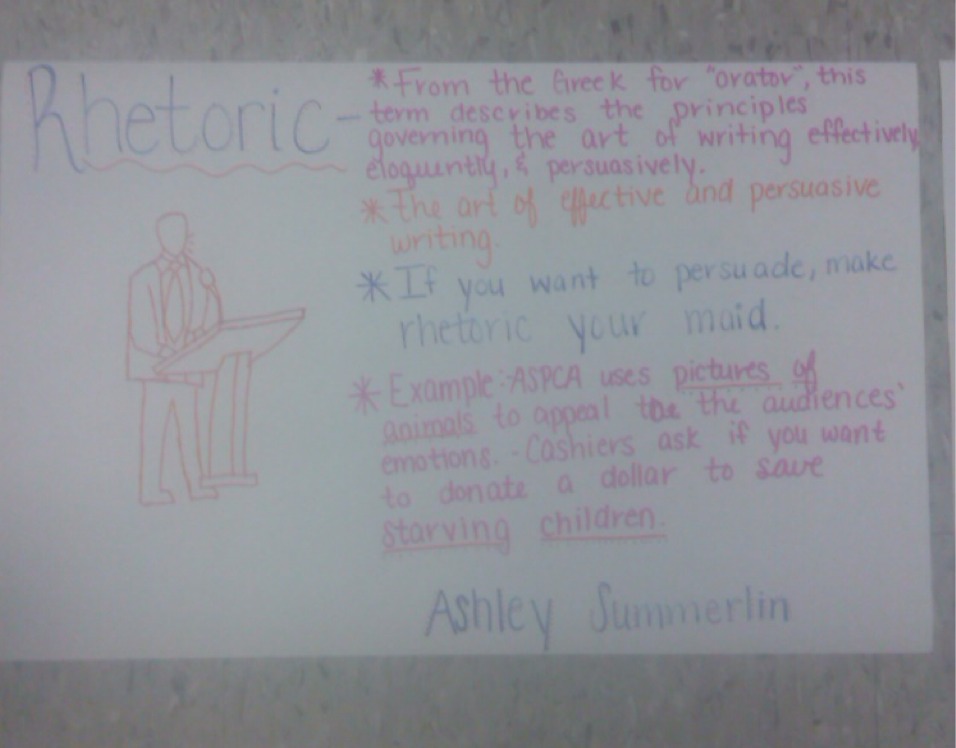 Rhetoric -
*From the Greek for "orator", this
term describes the principles
governing the art of writing effectively,
eloquently, & persuasively.
*The art of effective and persuasive
writing.
*If you want to persuade, make
rhetoric your maid.
*Example: ASPCA uses pictures of
animals to appeal to the the audiences'
emotions. - Cashiers ask if you want
to donate a dollar to save
starving children.
Ashley Summerlin